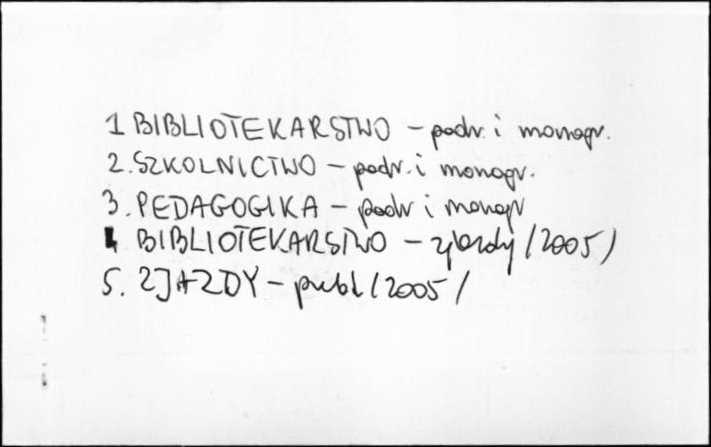 1 BIBLIOTEKARSTWO – podr. i monogr.
2. SZKOLNICTWO – podr. i monogr.
3. PEDAGOGIKA – podr i monogr
4 BIBLIOTEKARSTWO – zjazdy /2005/
5. ZJAZDY – publ /2005/